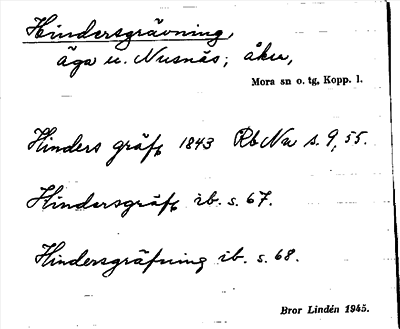 Hindersgrävning,
äga u. Nusnäs; åker,
Mora sn o. tg, Kopp. l.
Hinders gräfg 1843 Rb Nu s. 9, 55.
Hindersgräfg ib. s. 67.
Hindersgräfning ib. s. 68.
Bror Lindén 1945.